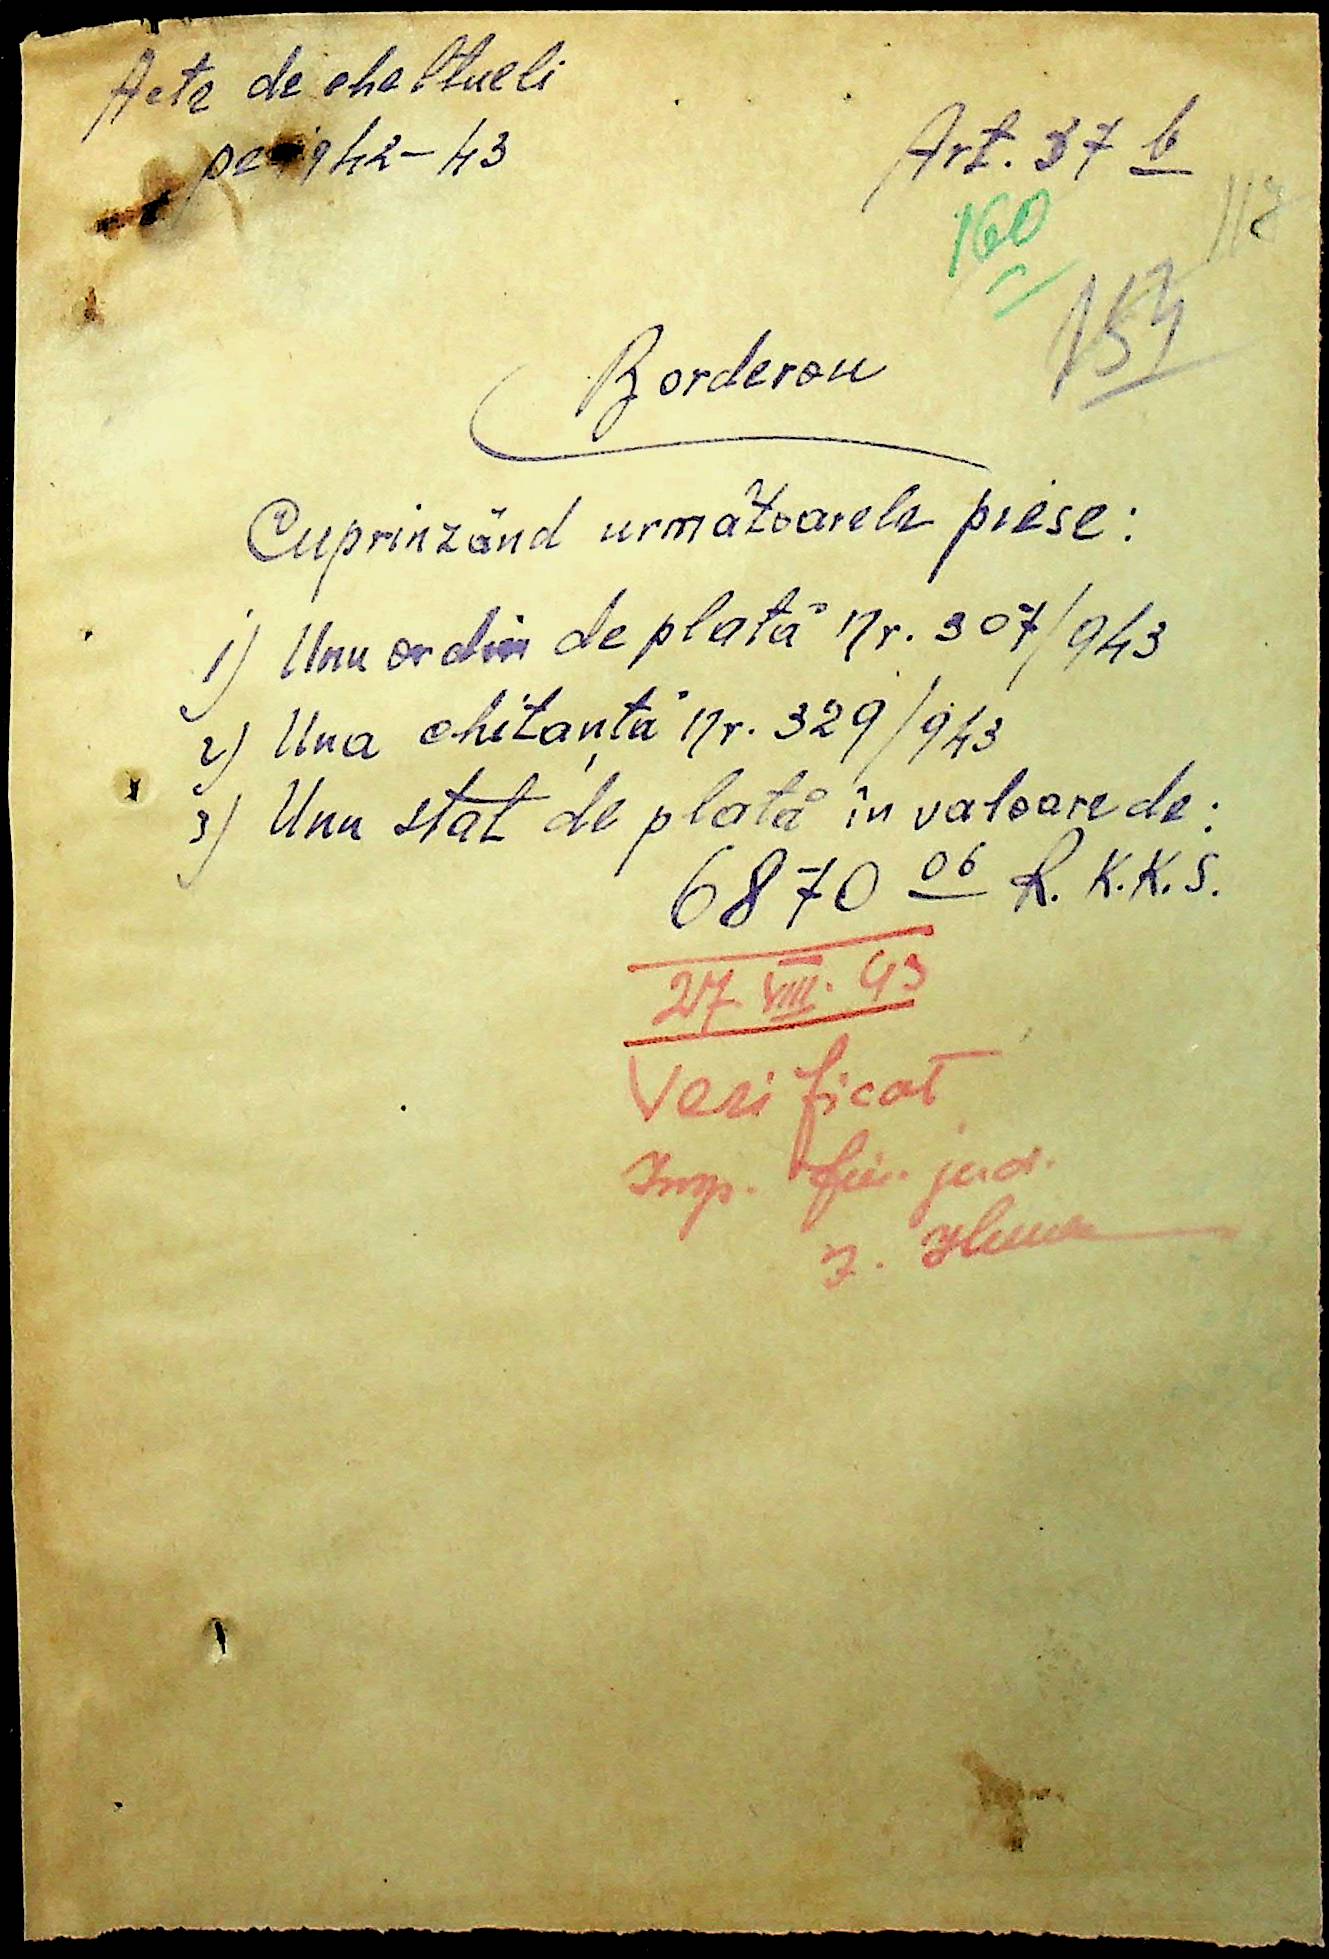 Acte de cheltueli
pe 1942-43
Art. 37 b
160
117
Borderou
Cuprinzând următoarele piese:
1) Unu ordin de plată Nr. 307/943
2) Una chitanță Nr. 329/943
3) Unu stat de plată în valoare de:
6870 06 R.K.K.S.
27. VIII. 43
Verificat
Insp. fin. jud.